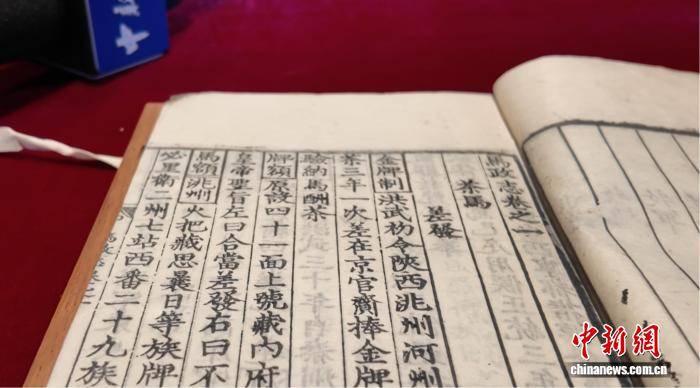 馬政志卷之一
茶馬
差發
金牌制洪武初令陝西洮州河州
茶三年一次差在京官齎捧金牌
驗納馬酬茶
牌額原設四十一面上號藏內府
皇帝聖旨左曰合當差發右曰不
馬額洮州火把藏思曩日等族牌
必里衛二州七站西番二十九族
中新網
chinanews.com.cn